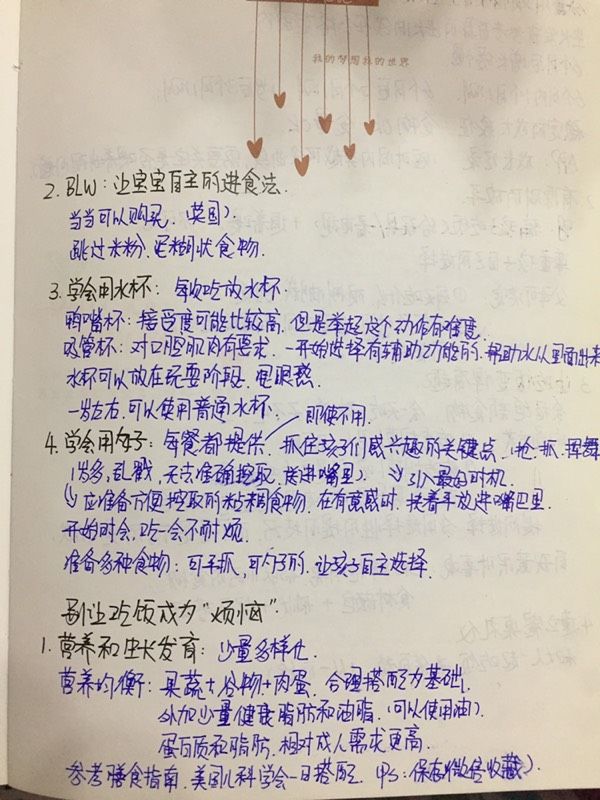 我的梦想我的世界
2. BLW：让宝宝自主的进食法.
当当可以购买.（英国）.
跳过米粉、泥糊状食物.
3. 学会用水杯：每次吃放水杯.
鸭嘴杯：接受度可能比较高，但是举起这个动作有难度.
吸管杯：对口腔肌肉有要求. 一开始选择有辅助功能的，帮助水从里面出来
水杯可以放在玩耍阶段，电眼熟.
一岁左右，可以使用普通水杯.
即使不用.
4. 学会用勺子：每餐都提供. 抓住孩子们感兴趣的关键点（抢、抓、挥舞
1岁多，乱戳，无法准确挖取，送进嘴里）. → 引入最的时机.
→ 应准备方便挖取的粘稠食物，在有意感时，扶着手放进嘴巴里.
开始时会，吃一会不耐烦.
准备多种食物：可手抓，可勺子的，让孩子自主选择.
别让吃饭成为“烦恼”.
1. 营养和生长发育：少量多样化.
营养均衡：果蔬+谷物+肉蛋，合理搭配为基础.
外加少量健康脂肪和油脂.（可以使用油）.
蛋白质和脂肪，相对成人需求更高.
参考膳食指南，美国儿科学会一日搭配.（PS：保存微信收藏）.